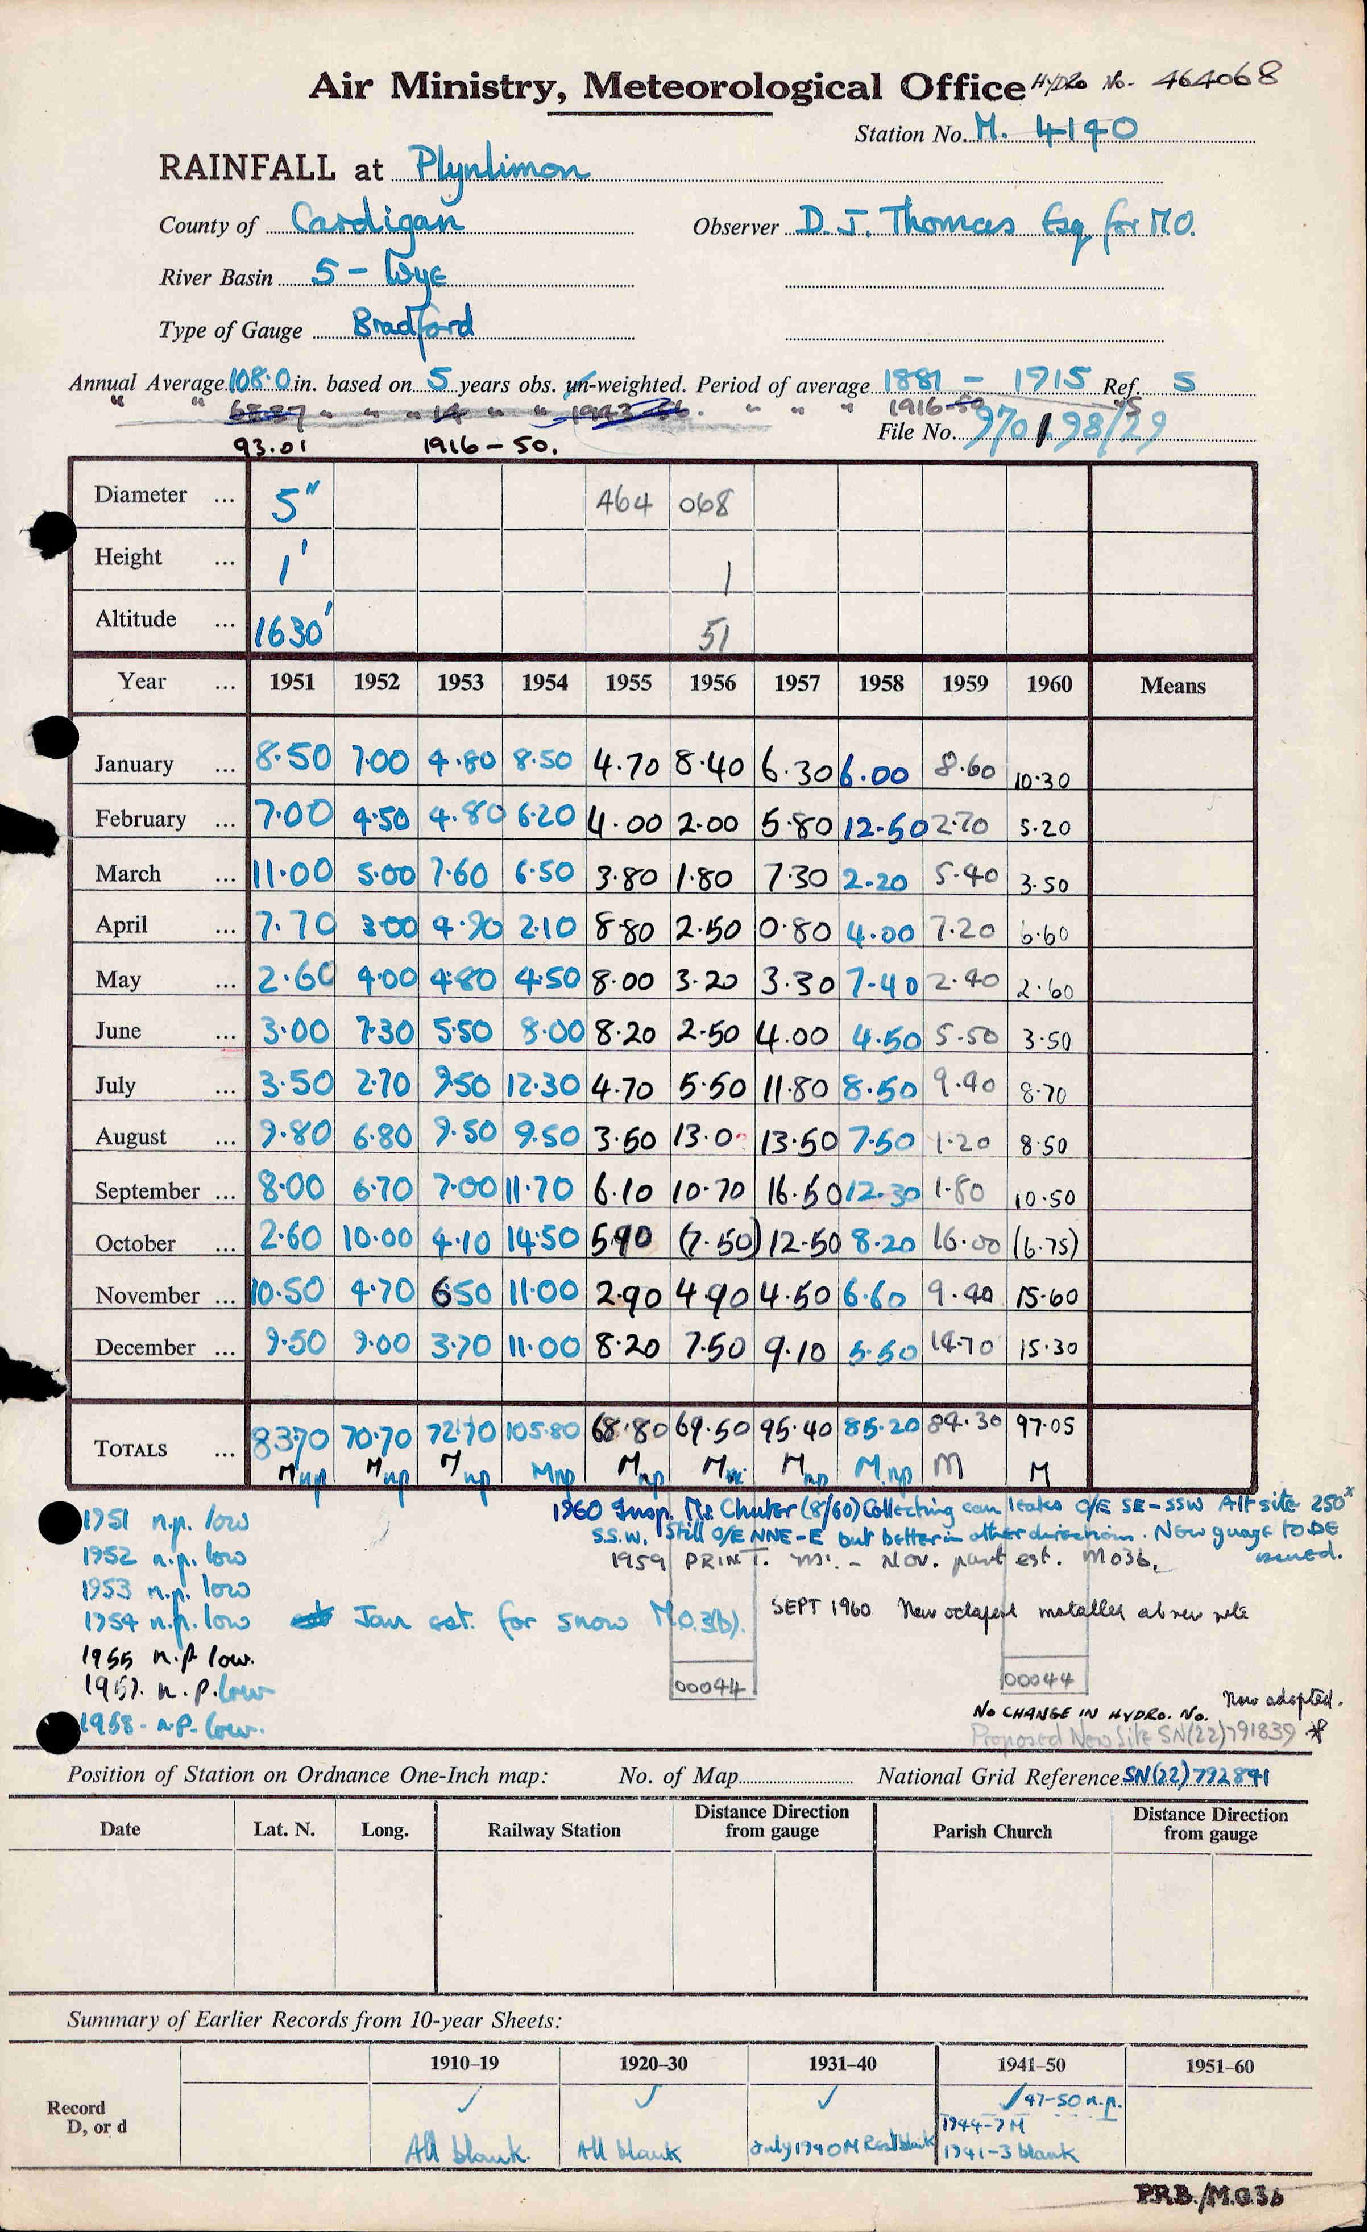 Air Ministry, Meteorological Office HYDRO No. 464068
Station No. M. 4140
RAINFALL at Plynlimon
County of Cardigan Observer D. J. Thomas Esq for M.O.
River Basin 5 - Wye
Type of Gauge Bradford
Annual Average 108.0 in. based on 5 years obs. un-weighted. Period of average 1881 - 1915 Ref. S
" " " " " " " " " " 1916-50
File No. 970198/29
93.01 1916 - 50.
Diameter ... 5" 464 068
Height ... 1' 1
Altitude ... 1630' 51
Year ... 1951 1952 1953 1954 1955 1956 1957 1958 1959 1960 Means
January ... 8.50 7.00 4.80 8.50 4.70 8.40 6.30 6.00 8.60 10.30
February ... 7.00 4.50 4.80 6.20 4.00 2.00 5.80 12.50 2.70 5.20
March ... 11.00 5.00 7.60 6.50 3.80 1.80 7.30 2.20 5.40 3.50
April ... 7.70 3.00 4.90 2.10 8.80 2.50 0.80 4.00 7.20 6.60
May ... 2.60 4.00 4.80 4.50 8.00 3.20 3.30 7.40 2.40 2.60
June ... 3.00 7.30 5.50 8.00 8.20 2.50 4.00 4.50 5.50 3.50
July ... 3.50 2.70 9.50 12.30 4.70 5.50 11.80 8.50 9.40 8.70
August ... 9.80 6.80 9.50 9.50 3.50 13.0 13.50 7.50 1.20 8.50
September ... 8.00 6.70 7.00 11.70 6.10 10.70 16.50 12.30 1.80 10.50
October ... 2.60 10.00 4.10 14.50 5.90 (7.50) 12.50 8.20 16.00 (6.75)
November ... 10.50 4.70 6.50 11.00 2.90 4.90 4.50 6.60 9.40 15.60
December ... 9.50 9.00 3.70 11.00 8.20 7.50 9.10 5.50 14.70 15.30
TOTALS ... 83.70 70.70 72.70 105.80 68.80 69.50 95.40 85.20 84.30 97.05
M np M np M np M np M np M M np M.np M M
1960 Insp. Mr Chuter (8/60) Collecting can leaks O/E SE - SSW Alt site 250x
S.S.W. Still O/E NNE-E but better in other directions. New guage TO BE issued.
1959 PRINT. - Nov. part est. M.O3b.
1951 n.p. low
1952 n.p. low
1953 n.p. low
1954 n.p. low Jan est. for snow M.O.3(b). SEPT 1960 New octapent installed at new site
1955 n.p low.
1957. n.p. low
1958 - n.p. low.
00044 00044
No CHANGE IN HYDRO. No. Now adopted.
Proposed New Site SN(22)791839 *
Position of Station on Ordnance One-Inch map: No. of Map National Grid Reference SN(22)792841
Date Lat. N. Long. Railway Station Distance Direction from gauge Parish Church Distance Direction from gauge
Summary of Earlier Records from 10-year Sheets:
1910–19 1920–30 1931–40 1941–50 1951–60
Record D, or d ✓ ✓ ✓ ✓ 47-50 n.p.
1944-7 M
All blank. All blank July 1940 M Rest blank 1941-3 blank
P.R.B./M.O.3b